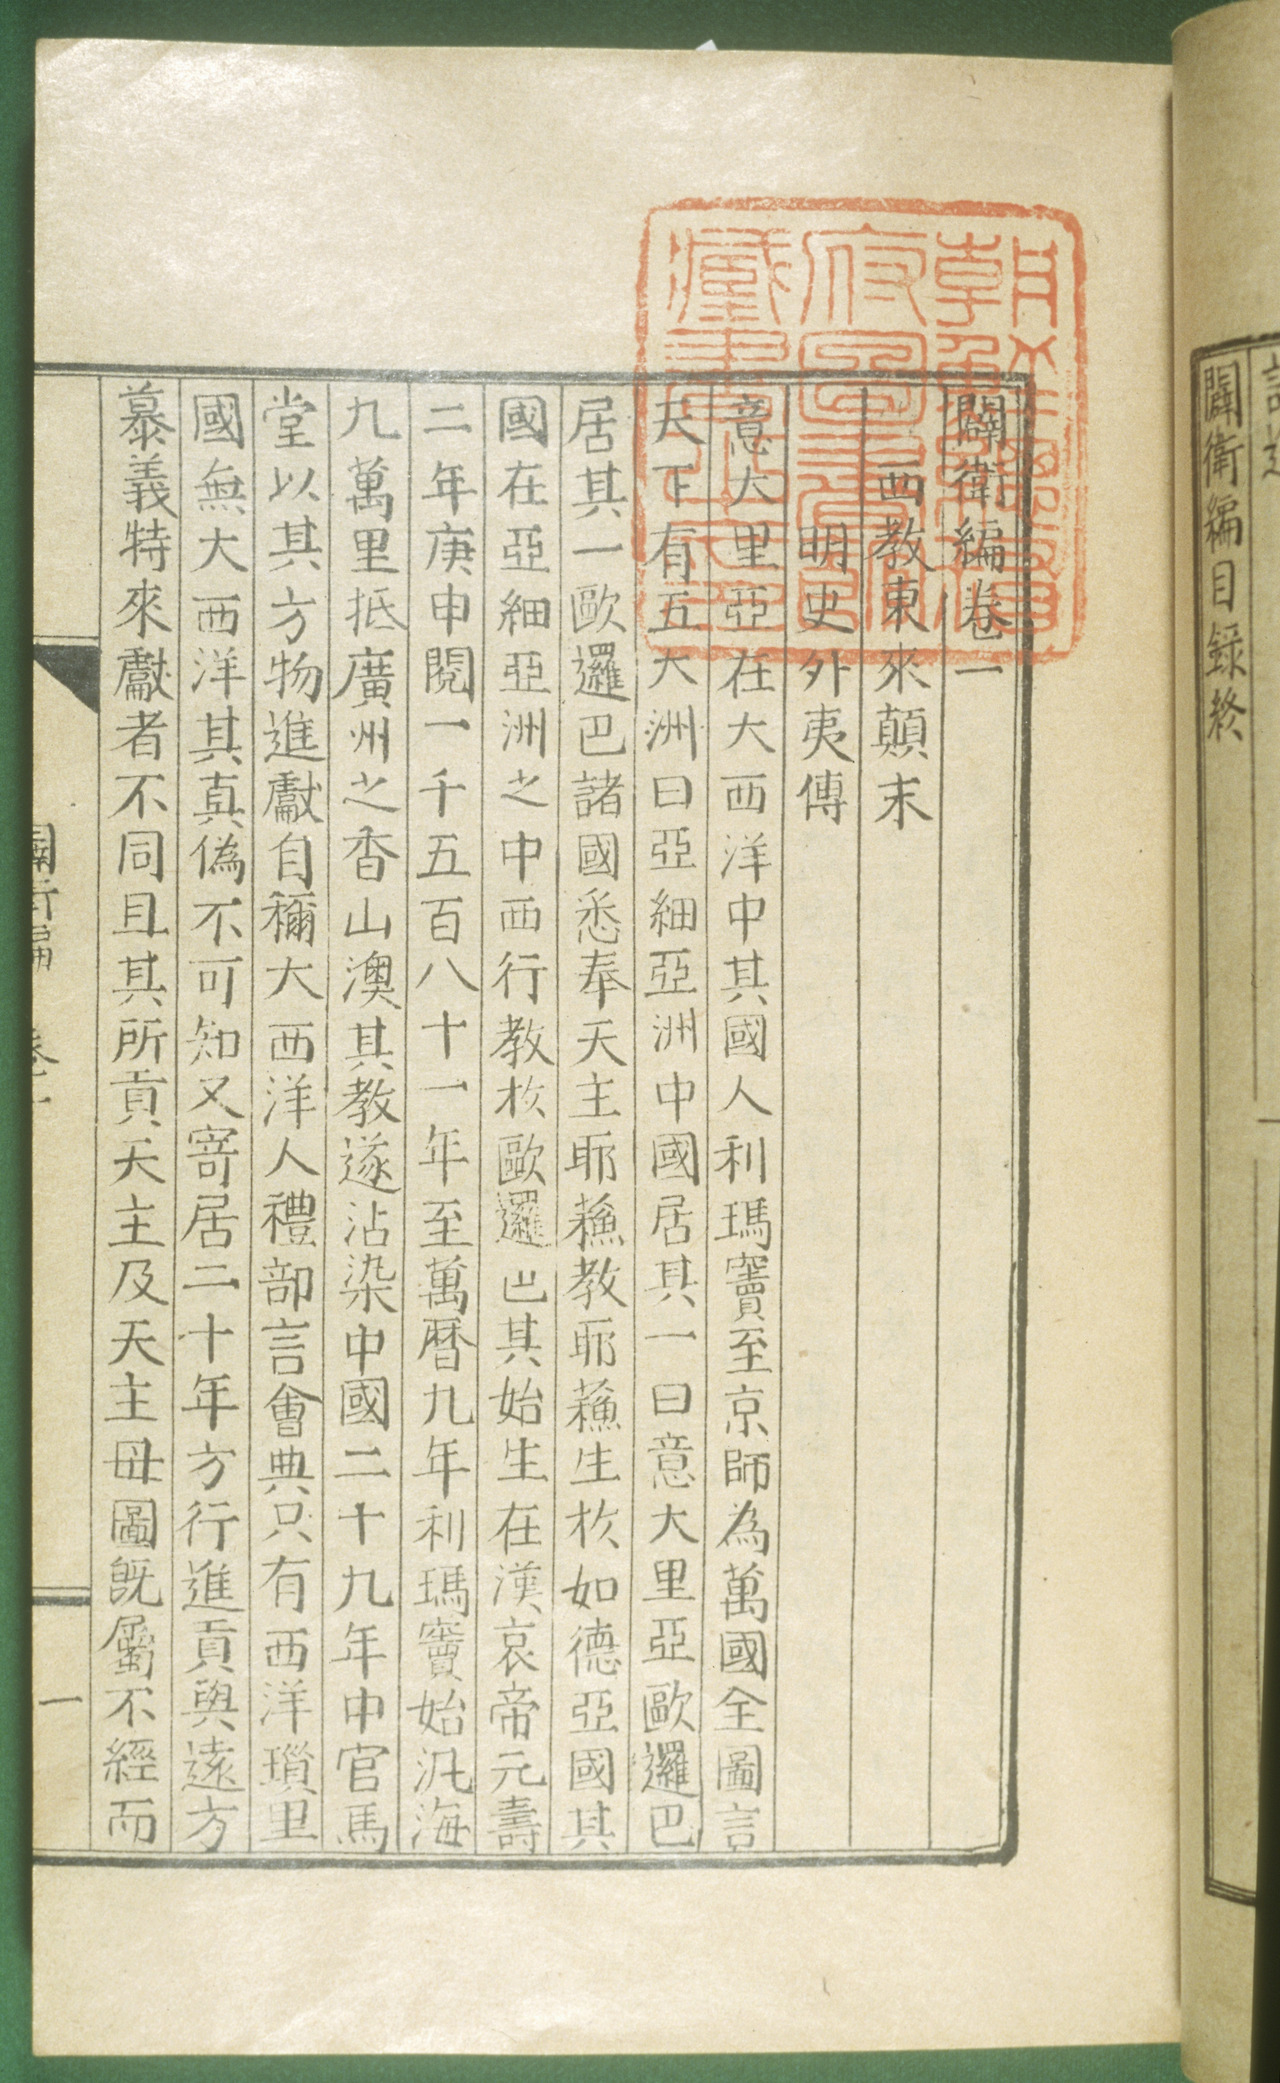 闢衛編目錄終
闢衛編卷一
西教東來顛末
明史外夷傳
意大里亞在大西洋中其國人利瑪竇至京師為萬國全圖言
天下有五大洲曰亞細亞洲中國居其一曰意大里亞歐邏巴
居其一歐邏巴諸國悉奉天主耶蘓教耶蘓生於如德亞國其
國在亞細亞洲之中西行教於歐邏巴其始生在漢哀帝元壽
二年庚申閱一千五百八十一年至萬曆九年利瑪竇始汎海
九萬里抵廣州之香山澳其教遂沾染中國二十九年中官馬
堂以其方物進獻自稱大西洋人禮部言會典只有西洋瑣里
國無大西洋其真偽不可知又寄居二十年方行進貢與遠方
慕義特來獻者不同且其所貢天主及天主毋圖既屬不經而
一
朝鮮總督府圖書館藏書之印